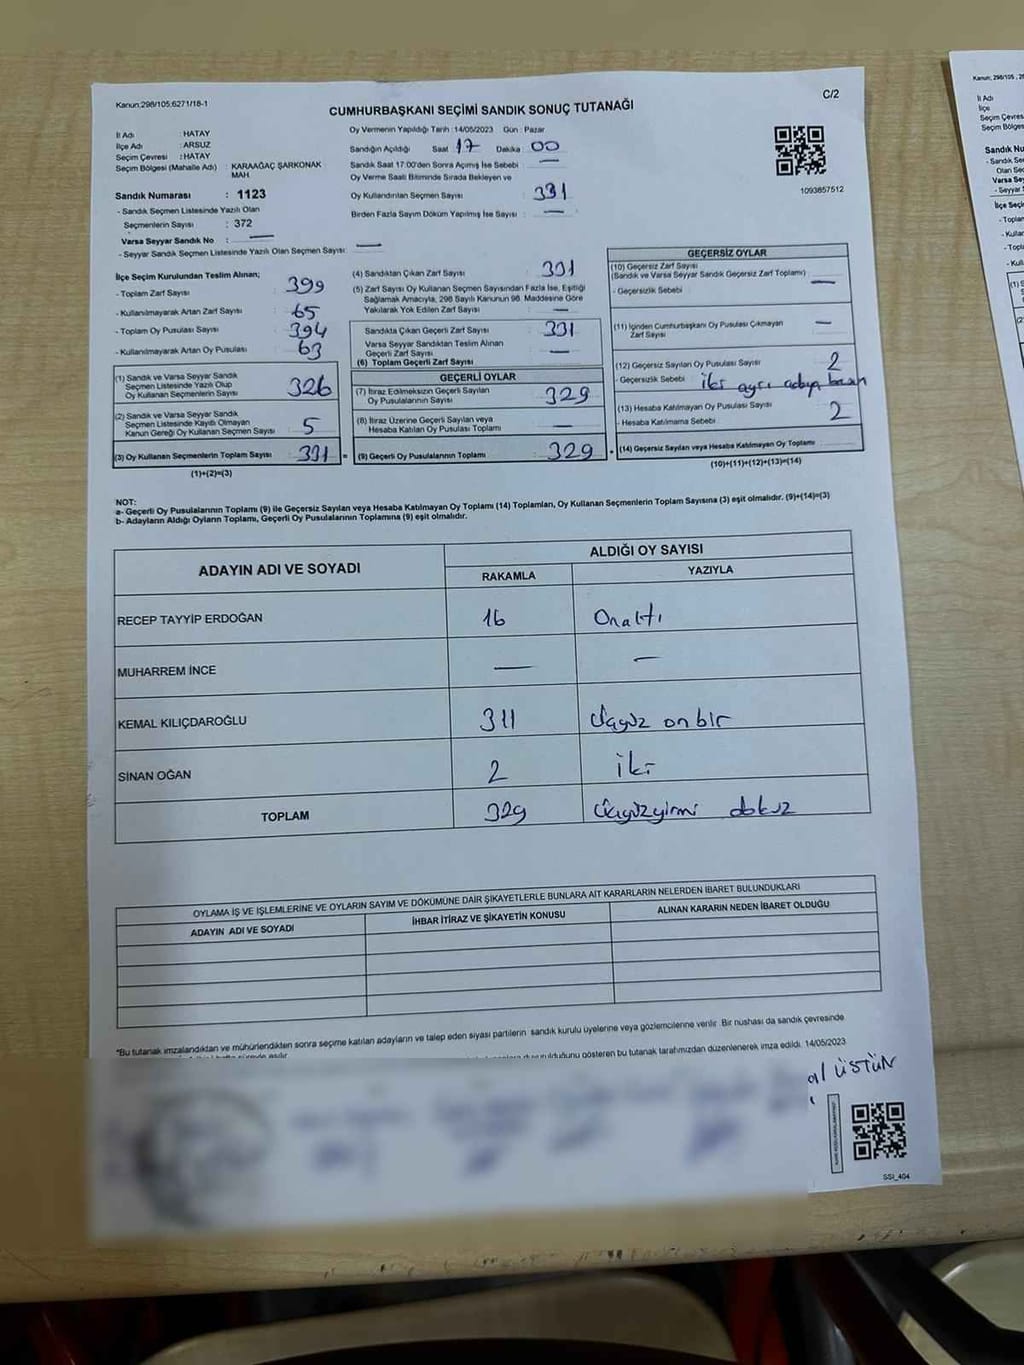 Kanun;298/105;6271/18-1
C/2
CUMHURBAŞKANI SEÇİMİ SANDIK SONUÇ TUTANAĞI
İl Adı : HATAY
İlçe Adı : ARSUZ
Seçim Çevresi : HATAY
Seçim Bölgesi (Mahalle Adı) : KARAAĞAÇ ŞARKONAK MAH.
Sandık Numarası : 1123
- Sandık Seçmen Listesinde Yazılı Olan
Seçmenlerin Sayısı : 372
Varsa Seyyar Sandık No : —
- Seyyar Sandık Seçmen Listesinde Yazılı Olan Seçmen Sayısı: —
Oy Vermenin Yapıldığı Tarih :14/05/2023 Gün : Pazar
Sandığın Açıldığı Saat 17 Dakika : 00
Sandık Saat 17:00'den Sonra Açılmış İse Sebebi : —
Oy Verme Saati Bitiminde Sırada Bekleyen ve
Oy Kullandırılan Seçmen Sayısı : 331
Birden Fazla Sayım Döküm Yapılmış İse Sayısı : —
1093857512
İlçe Seçim Kurulundan Teslim Alınan;
- Toplam Zarf Sayısı : 399
- Kullanılmayarak Artan Zarf Sayısı : 65
- Toplam Oy Pusulası Sayısı : 394
- Kullanılmayarak Artan Oy Pusulası : 63
(1) Sandık ve Varsa Seyyar Sandık
Seçmen Listesinde Yazılı Olup
Oy Kullanan Seçmenlerin Sayısı : 326
(2) Sandık ve Varsa Seyyar Sandık
Seçmen Listesinde Kayıtlı Olmayan
Kanun Gereği Oy Kullanan Seçmen Sayısı : 5
(3) Oy Kullanan Seçmenlerin Toplam Sayısı : 331 =
(1)+(2)=(3)
(4) Sandıktan Çıkan Zarf Sayısı : 331
(5) Zarf Sayısı Oy Kullanan Seçmen Sayısından Fazla İse, Eşitliği
Sağlamak Amacıyla, 298 Sayılı Kanunun 98. Maddesine Göre
Yakılarak Yok Edilen Zarf Sayısı : —
Sandıkta Çıkan Geçerli Zarf Sayısı : 331
Varsa Seyyar Sandıktan Teslim Alınan
Geçerli Zarf Sayısı : —
(6) Toplam Geçerli Zarf Sayısı
GEÇERLİ OYLAR
(7) İtiraz Edilmeksizin Geçerli Sayılan
Oy Pusulasının Sayısı : 329
(8) İtiraz Üzerine Geçerli Sayılan veya
Hesaba Katılan Oy Pusulası Toplamı : —
(9) Geçerli Oy Pusulalarının Toplamı : 329 +
GEÇERSİZ OYLAR
(10) Geçersiz Zarf Sayısı :
(Sandık ve Varsa Seyyar Sandık Geçersiz Zarf Toplamı) —
- Geçersizlik Sebebi :
(11) İçinden Cumhurbaşkanı Oy Pusulası Çıkmayan
Zarf Sayısı : —
(12) Geçersiz Sayılan Oy Pusulası Sayısı : 2
- Geçersizlik Sebebi : iki ayrı adaya basan
(13) Hesaba Katılmayan Oy Pusulası Sayısı : 2
- Hesaba Katılmama Sebebi :
(14) Geçersiz Sayılan veya Hesaba Katılmayan Oy Toplamı
(10)+(11)+(12)+(13)=(14)
NOT:
a- Geçerli Oy Pusulalarının Toplamı (9) ile Geçersiz Sayılan veya Hesaba Katılmayan Oy Toplamı (14) Toplamları, Oy Kullanan Seçmenlerin Toplam Sayısına (3) eşit olmalıdır. (9)+(14)=(3)
b- Adayların Aldığı Oyların Toplamı, Geçerli Oy Pusulalarının Toplamına (9) eşit olmalıdır.
ADAYIN ADI VE SOYADI
ALDIĞI OY SAYISI
RAKAMLA YAZIYLA
RECEP TAYYİP ERDOĞAN 16 Onaltı
MUHARREM İNCE — —
KEMAL KILIÇDAROĞLU 311 Üçyüz onbir
SİNAN OĞAN 2 iki
TOPLAM 329 Üçyüzyirmi dokuz
OYLAMA İŞ VE İŞLEMLERİNE VE OYLARIN SAYIM VE DÖKÜMÜNE DAİR ŞİKAYETLERLE BUNLARA AİT KARARLARIN NELERDEN İBARET BULUNDUKLARI
ADAYIN ADI VE SOYADI İHBAR İTİRAZ VE ŞİKAYETİN KONUSU ALINAN KARARIN NEDEN İBARET OLDUĞU
*Bu tutanak imzalandıktan ve mühürlendikten sonra seçime katılan adayların ve talep eden siyasi partilerin sandık kurulu üyelerine veya gözlemcilerine verilir. Bir nüshası da sandık çevresinde
gösteren bu tutanak tarafımızdan düzenlenerek imza edildi. 14/05/2023
ÜSTÜN
SSI_404
Kanun; 298/105
İl Adı
İlçe
Seçim Çevres
Seçim Bölges
Sandık Nu